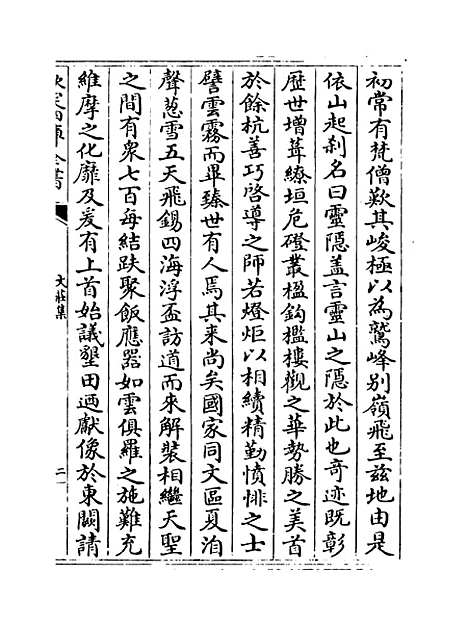 初常有梵僧歎其峻極以為鷲峰别嶺飛至兹地由是
依山起刹名曰靈隱蓋言靈山之隱於此也奇迹既彰
歴世增葺繚垣危磴叢楹鉤檻樓觀之華勢勝之美首
於餘杭善巧啓導之師若燈炬以相續精勤憤悱之士
譬雲霧而畢臻世有人焉其来尚矣國家同文區夏洎
聲葱雪五天飛錫四海浮盃訪道而來解装相繼天聖
之間有衆七百每結趺聚飯應器如雲俱羅之施難充
維摩之化靡及爰有上首始議墾田迺獻像於東闕請
文莊集
二